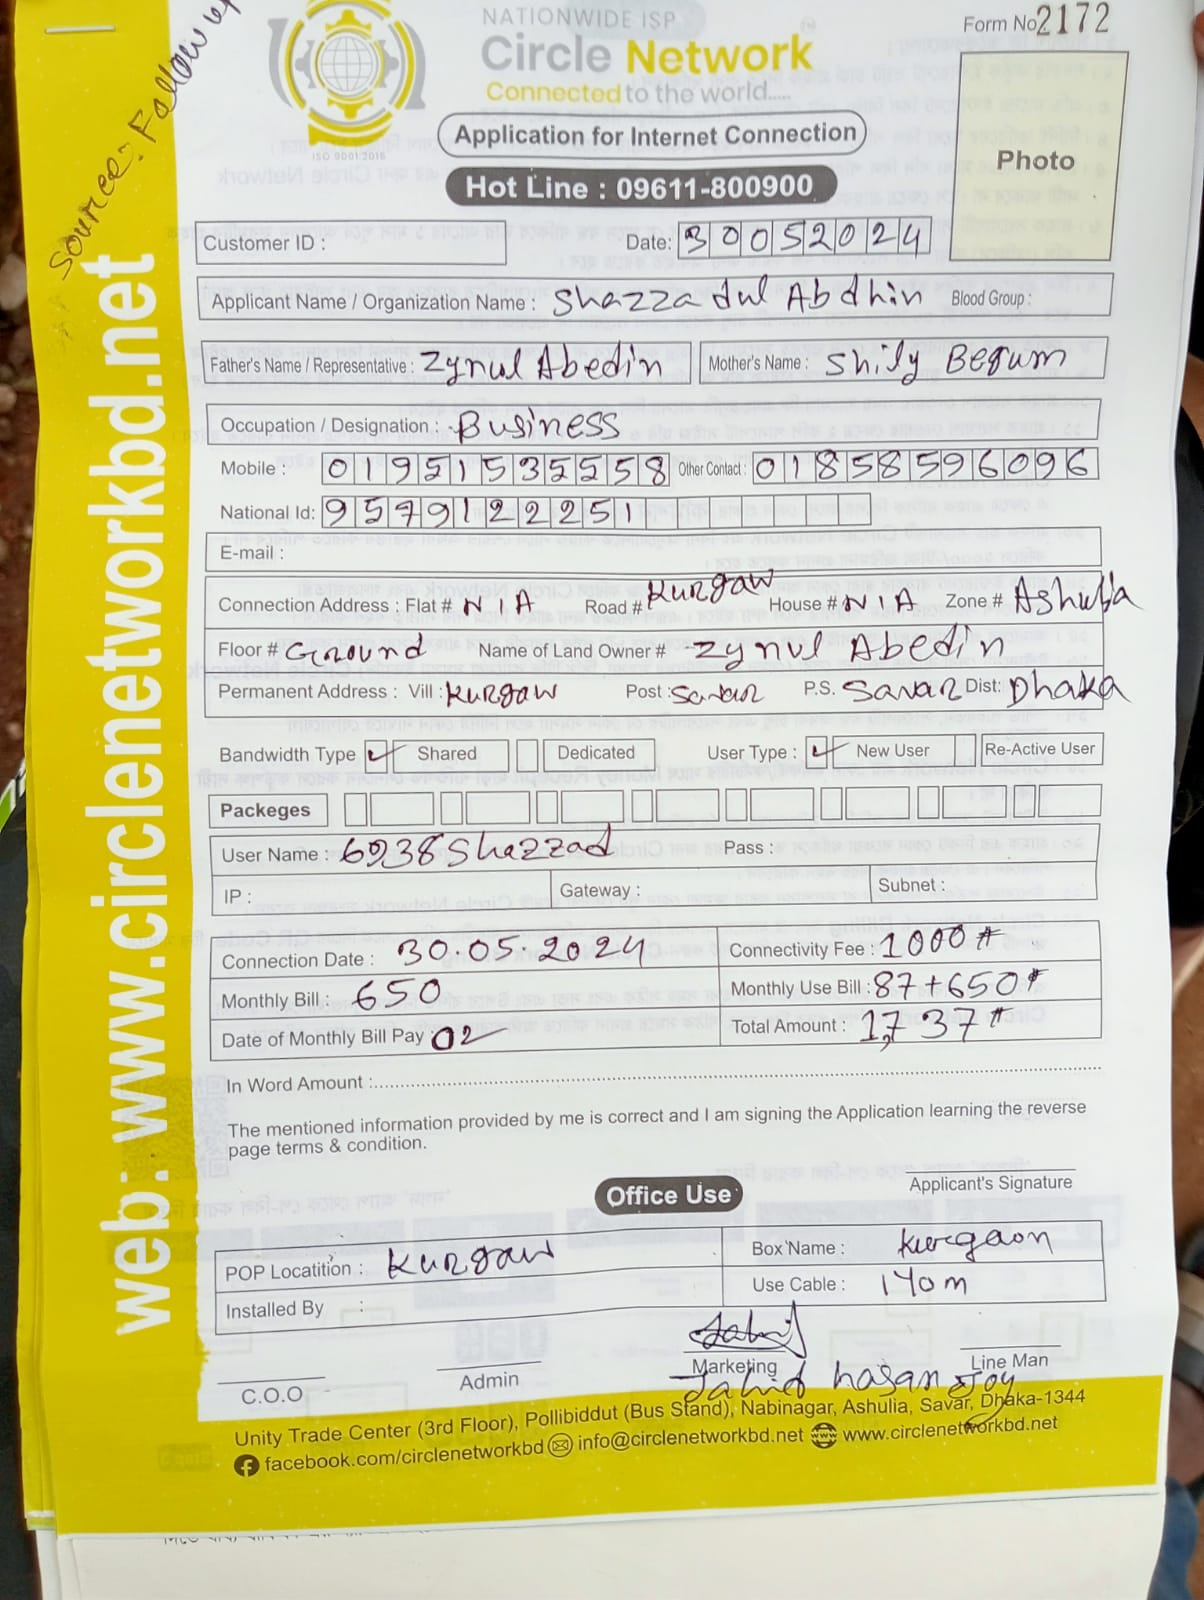 Source: Follow up
NATIONWIDE ISP
Circle Network
Connected to the world.....
ISO 9001:2015
Form No 2172
Application for Internet Connection
Photo
Hot Line : 09611-800900
Customer ID :
Date: 30052024
Applicant Name / Organization Name : Shazzadul Abdhin Blood Group :
Father's Name / Representative : Zynul Abedin Mother's Name : Shily Begum
Occupation / Designation : Business
Mobile : 01951535558 Other Contact : 01858596096
National Id: 9579122251
E-mail :
Connection Address : Flat # N/A Road # Kurgaw House # N/A Zone # Ashulia
Floor # Ground Name of Land Owner # Zynul Abedin
Permanent Address : Vill : Kurgaw Post : Savar P.S. Savar Dist: Dhaka
Bandwidth Type ✓ Shared Dedicated User Type : ✓ New User Re-Active User
Packeges
User Name : 6938Shazzad Pass :
IP : Gateway : Subnet :
Connection Date : 30.05.2024 Connectivity Fee : 1000#
Monthly Bill : 650 Monthly Use Bill : 87+650#
Date of Monthly Bill Pay : 02 Total Amount : 1,737#
In Word Amount :
The mentioned information provided by me is correct and I am signing the Application learning the reverse
page terms & condition.
Applicant's Signature
Office Use
POP Locatition : Kurgaw Box Name : Kurgaon
Installed By : Use Cable : 140m
C.O.O Admin Marketing Line Man
Jahid hasan Joy
Unity Trade Center (3rd Floor), Pollibiddut (Bus Stand), Nabinagar, Ashulia, Savar, Dhaka-1344
facebook.com/circlenetworkbd info@circlenetworkbd.net www.circlenetworkbd.net
web: www.circlenetworkbd.net